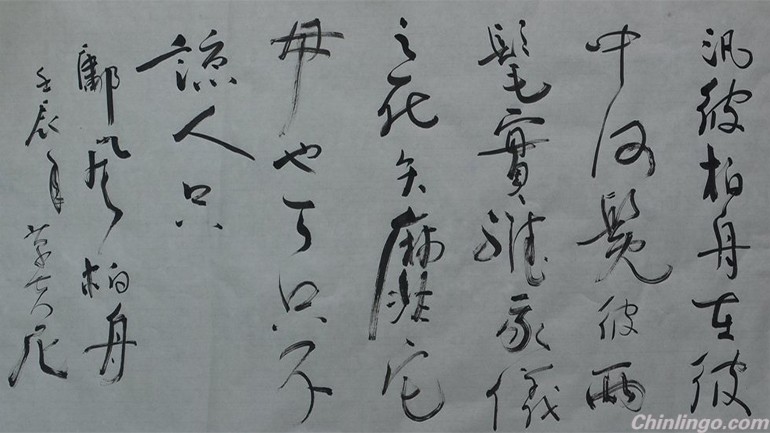 汎彼柏舟在彼
中河髧彼兩
髦實維我儀
之死矢靡它
母也天只不
諒人只
鄘風柏舟
壬辰年
Chinlingo.com